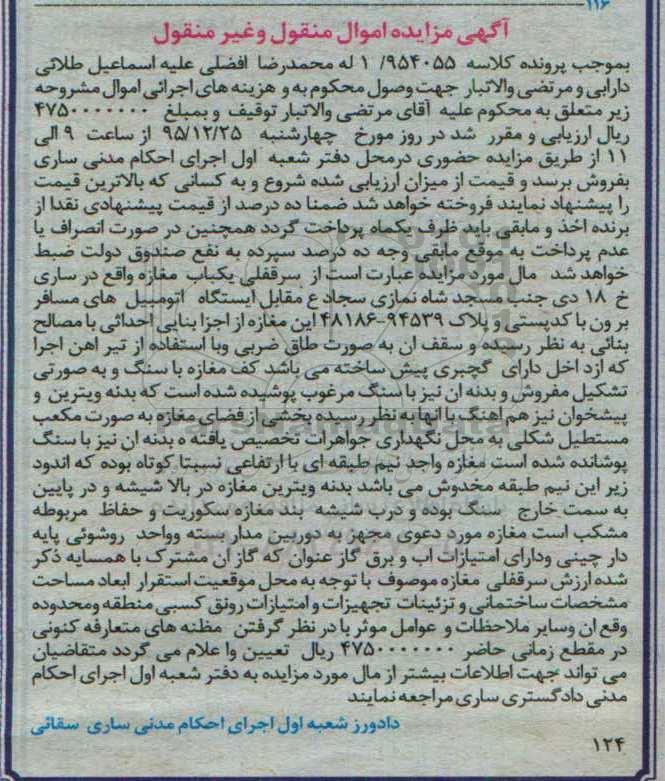 ۱۱۶
آگهی مزایده اموال منقول وغیر منقول
بموجب پرونده کلاسه ۹۵۴۰۵۵/ ۱ له محمدرضا افضلی علیه اسماعیل طلائی
دارابی و مرتضی والاتبار جهت وصول محکوم به و هزینه های اجرائی اموال مشروحه
زیر متعلق به محکوم علیه آقای مرتضی والاتبار توقیف و بمبلغ ۴۷۵۰۰۰۰۰۰۰
ریال ارزیابی و مقرر شد در روز مورخ چهارشنبه ۹۵/۱۲/۲۵ از ساعت ۹ الی
۱۱ از طریق مزایده حضوری درمحل دفتر شعبه اول اجرای احکام مدنی ساری
بفروش برسد و قیمت از میزان ارزیابی شده شروع و به کسانی که بالاترین قیمت
را پیشنهاد نمایند فروخته خواهد شد ضمنا ده درصد از قیمت پیشنهادی نقدا از
برنده اخذ و مابقی باید ظرف یکماه پرداخت گردد همچنین در صورت انصراف یا
عدم پرداخت به موقع مابقی وجه ده درصد سپرده به نفع صندوق دولت ضبط
خواهد شد مال مورد مزایده عبارت است از سرقفلی یکباب مغازه واقع در ساری
خ ۱۸ دی جنب مسجد شاه نمازی سجاد ع مقابل ایستگاه اتومبیل های مسافر
بر ون با کدپستی و پلاک ۹۴۵۳۹-۴۸۱۸۶ این مغازه از اجزا بنایی احداثی با مصالح
بنائی به نظر رسیده و سقف ان به صورت طاق ضربی وبا استفاده از تیر اهن اجرا
که ازد اخل دارای گچبری پیش ساخته می باشد کف مغازه با سنگ و به صورتی
تشکیل مفروش و بدنه ان نیز با سنگ مرغوب پوشیده شده است که بدنه ویترین و
پیشخوان نیز هم اهنگ با انها به نظر رسیده بخشی از فضای مغازه به صورت مکعب
مستطیل شکلی به محل نگهداری جواهرات تخصیص یافته ه بدنه ان نیز با سنگ
پوشانده شده است مغازه واجد نیم طبقه ای با ارتفاعی نسبتا کوتاه بوده که اندود
زیر این نیم طبقه مخدوش می باشد بدنه ویترین مغازه در بالا شیشه و در پایین
به سمت خارج سنگ بوده و درب شیشه بند مغازه سکوریت و حفاظ مربوطه
مشکب است مغازه مورد دعوی مجهز به دوربین مدار بسته وواحد روشوئی پایه
دار چینی ودارای امتیازات اب و برق گاز عنوان که گاز ان مشترک با همسایه ذکر
شده ارزش سرقفلی مغازه موصوف با توجه به محل موقعیت استقرار ابعاد مساحت
مشخصات ساختمانی و تزئینات تجهیزات و امتیازات رونق کسبی منطقه ومحدوده
وقع ان وسایر ملاحظات و عوامل موثر با در نظر گرفتن مظنه های متعارفه کنونی
در مقطع زمانی حاضر ۴۷۵۰۰۰۰۰۰۰ ریال تعیین وا علام می گردد متقاضیان
می تواند جهت اطلاعات بیشتر از مال مورد مزایده به دفتر شعبه اول اجرای احکام
مدنی دادگستری ساری مراجعه نمایند
دادورز شعبه اول اجرای احکام مدنی ساری سقائی
۱۲۴